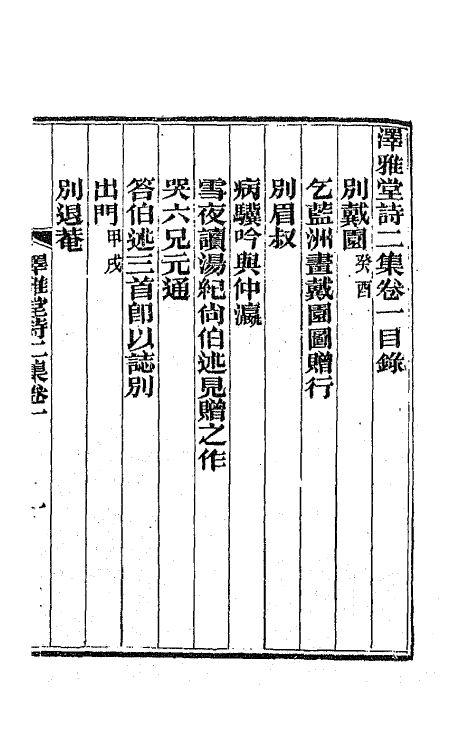 澤雅堂詩二集卷一目錄
別戴園癸酉
乞藍洲畫戴園圖贈行
別眉叔
病驥吟與仲瀛
雪夜讀湯紀尙伯述見贈之作
哭六兄元通
答伯述三首卽以誌別
出門甲戌
別退菴
澤雅堂詩二集卷一